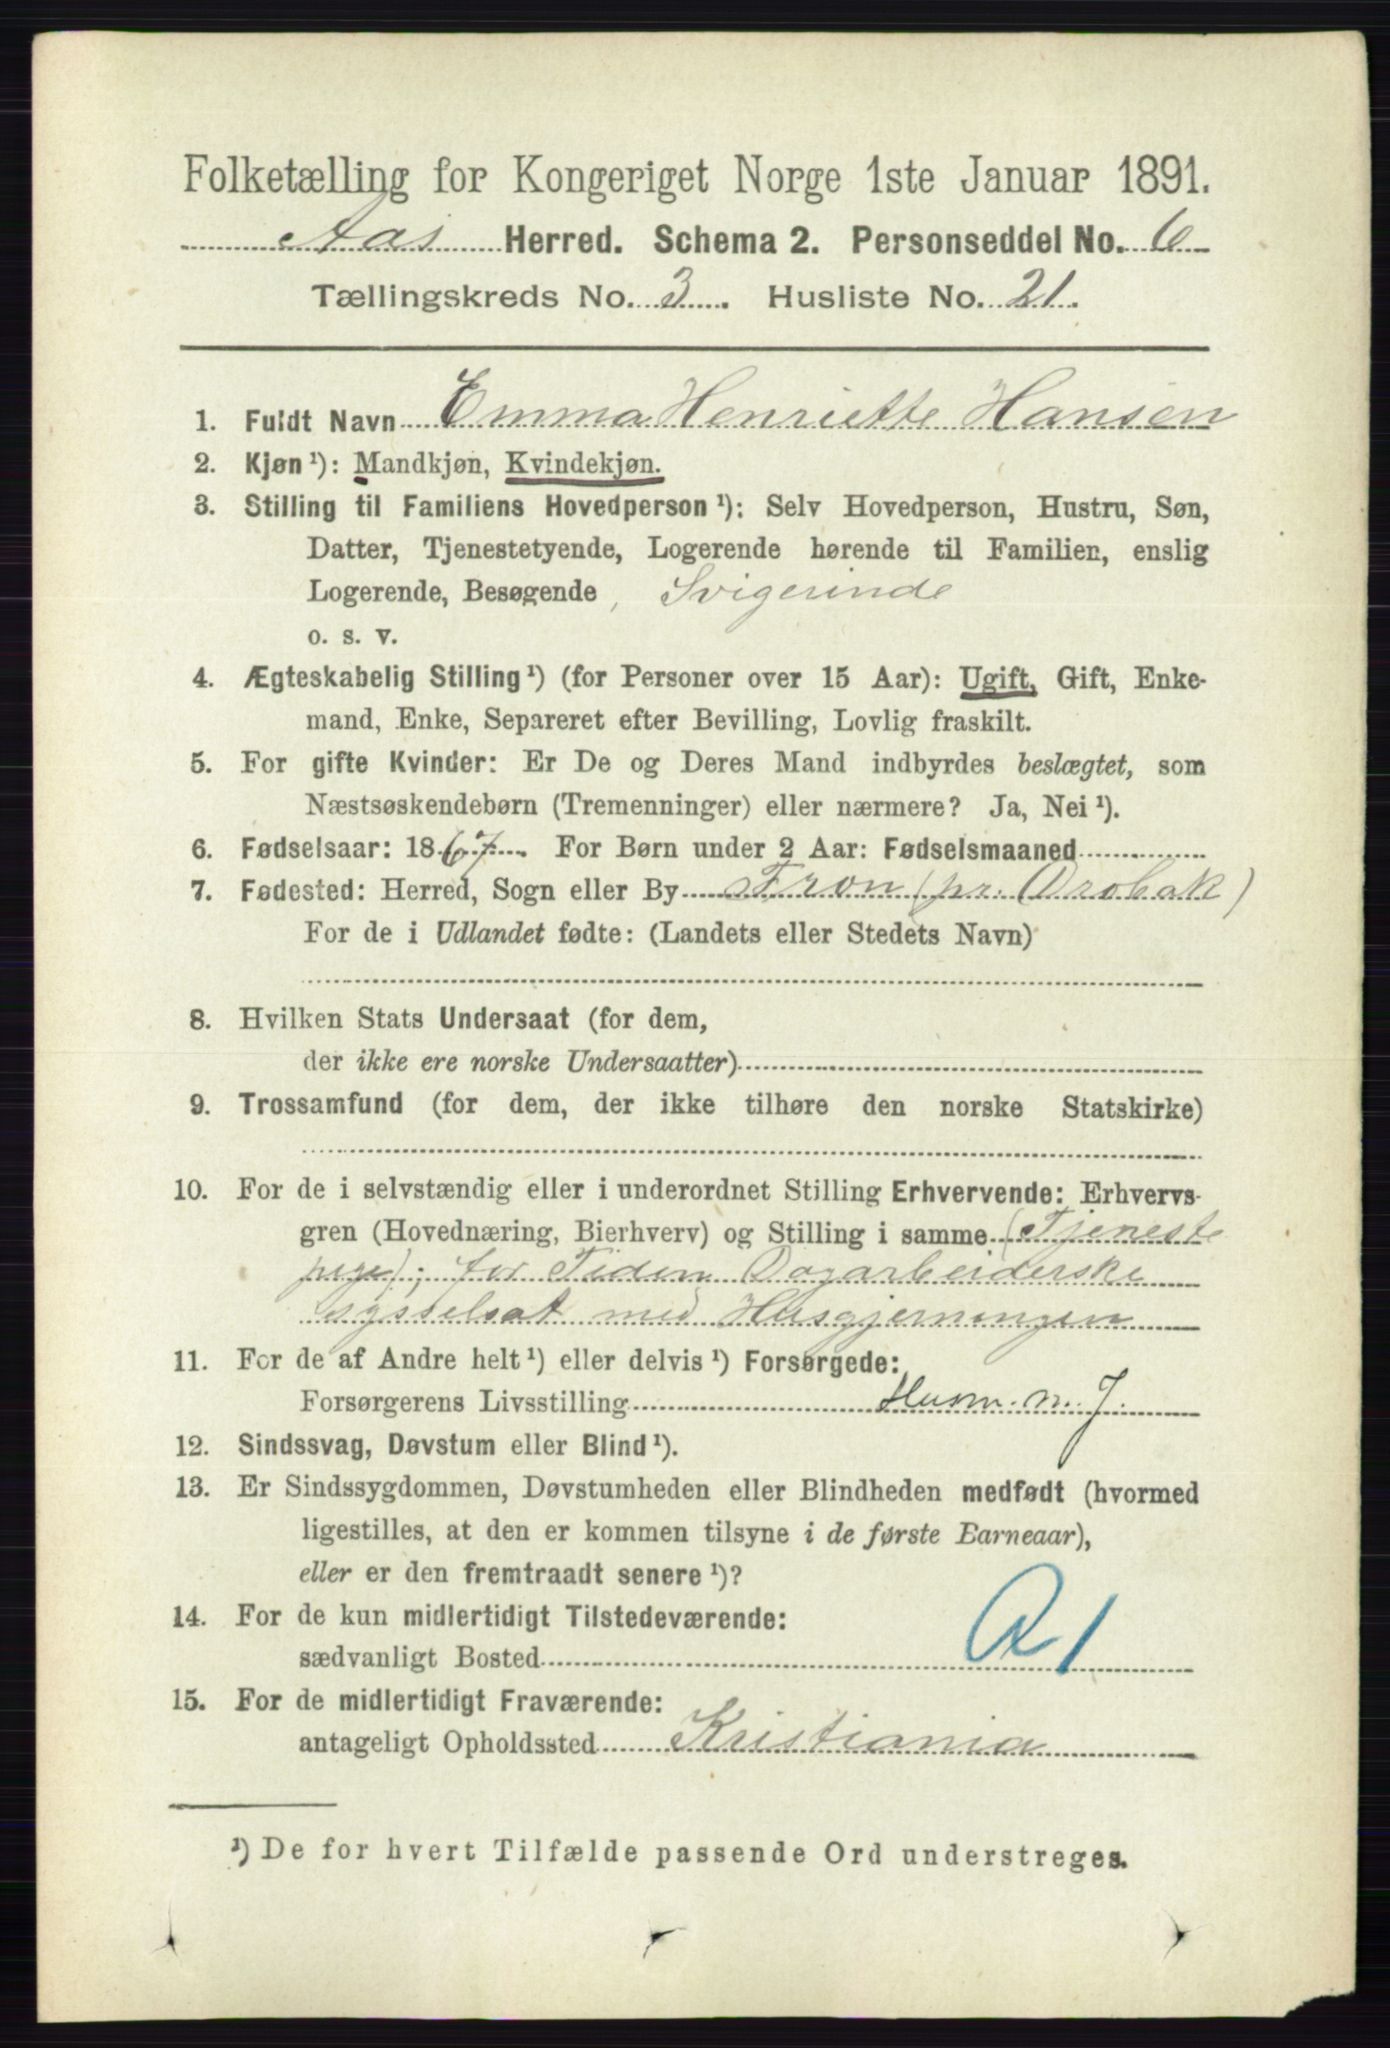 Folketælling for Kongeriget Norge 1ste Januar 1891.
Aas Herred. Schema 2. Personseddel No. 6
Tællingskreds No. 3. Husliste No. 21.
1. Fuldt Navn Emma Henriette Hansen
2. Kjøn ¹): Mandkjøn, Kvindekjøn.
3. Stilling til Familiens Hovedperson ¹): Selv Hovedperson, Hustru, Søn,
Datter, Tjenestetyende, Logerende hørende til Familien, enslig
Logerende, Besøgende, Svigerinde
o. s. v.
4. Ægteskabelig Stilling ¹) (for Personer over 15 Aar): Ugift, Gift, Enke-
mand, Enke, Separeret efter Bevilling, Lovlig fraskilt.
5. For gifte Kvinder: Er De og Deres Mand indbyrdes beslægtet, som
Næstsøskendebørn (Tremenninger) eller nærmere? Ja, Nei ¹).
6. Fødselsaar: 1867. For Børn under 2 Aar: Fødselsmaaned
7. Fødested: Herred, Sogn eller By Fron (pr. Drøbak)
For de i Udlandet fødte: (Landets eller Stedets Navn)
8. Hvilken Stats Undersaat (for dem,
der ikke ere norske Undersaatter)
9. Trossamfund (for dem, der ikke tilhøre den norske Statskirke)
10. For de i selvstændig eller i underordnet Stilling Erhvervende: Erhvervs-
gren (Hovednæring, Bierhverv) og Stilling i samme (Tjeneste
pige); for Tiden Dagarbeiderske
sysselsat med Husgjerningen
11. For de af Andre helt ¹) eller delvis ¹) Forsørgede:
Forsørgerens Livsstilling Husm. m. J.
12. Sindssvag, Døvstum eller Blind ¹).
13. Er Sindssygdommen, Døvstumheden eller Blindheden medfødt (hvormed
ligestilles, at den er kommen tilsyne i de første Barneaar),
eller er den fremtraadt senere ¹)?
14. For de kun midlertidigt Tilstedeværende:
sædvanligt Bosted
15. For de midlertidigt Fraværende:
antageligt Opholdssted Kristiania
¹) De for hvert Tilfælde passende Ord understreges.